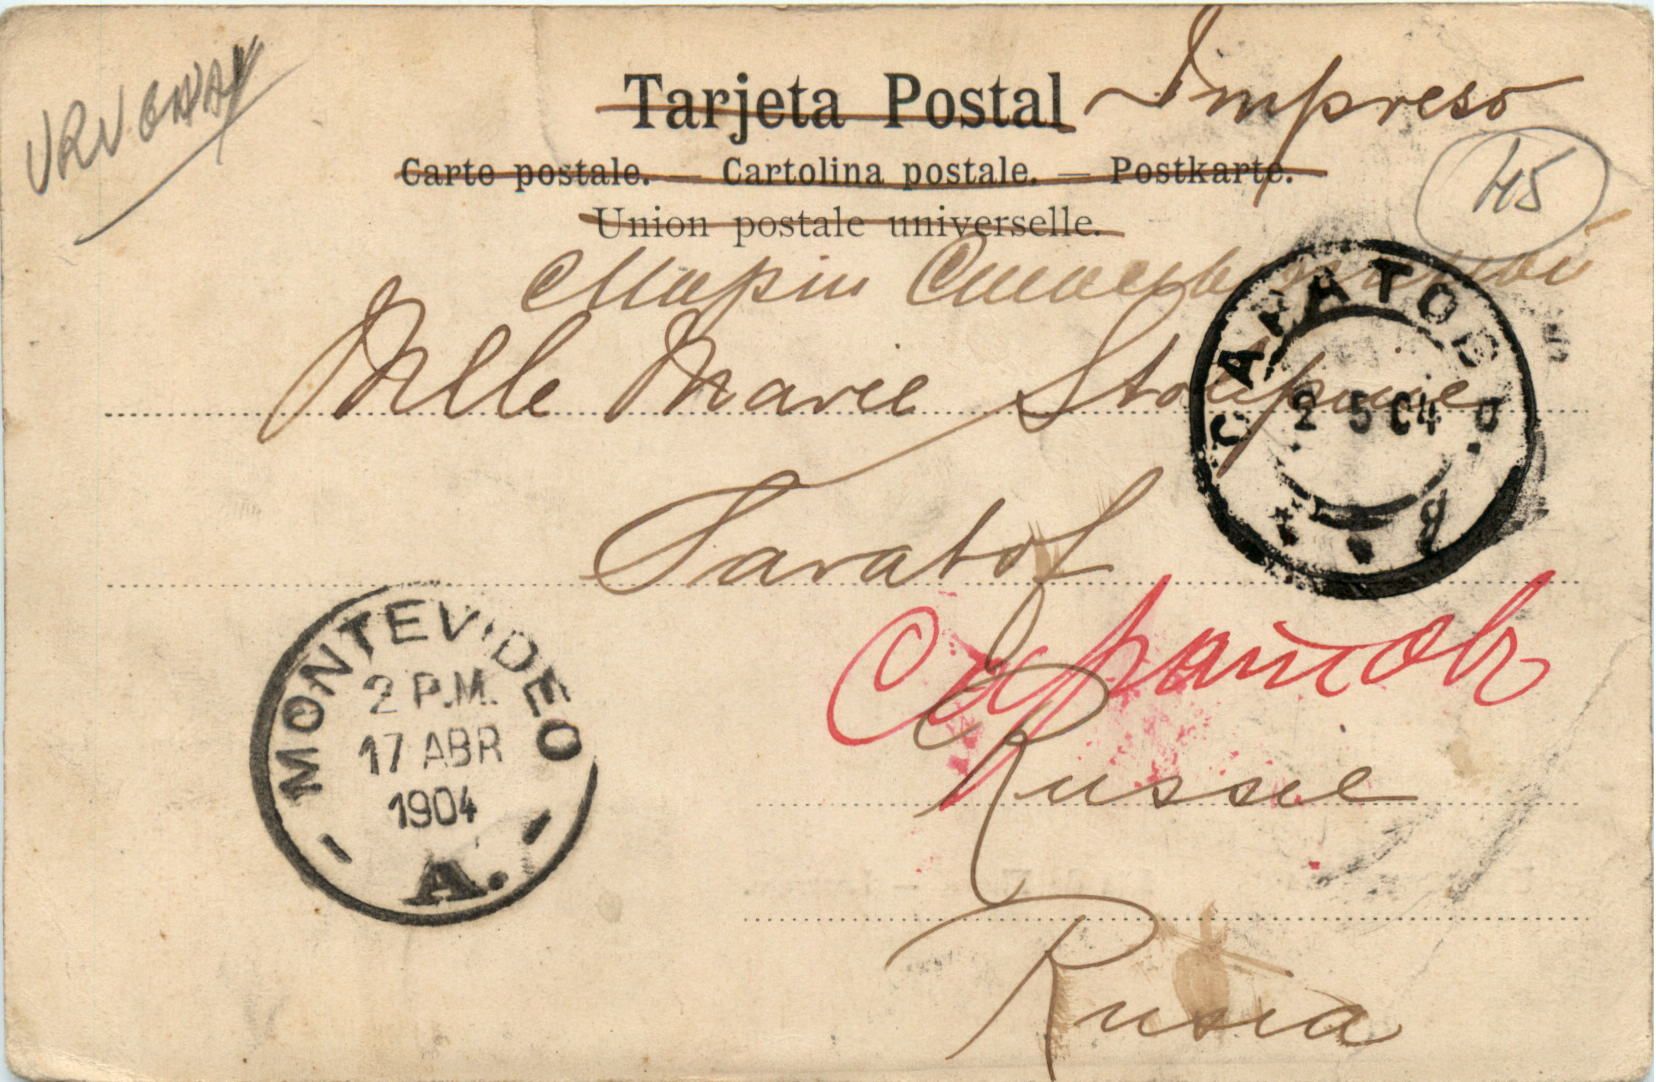 URUGUAY
Tarjeta Postal Impreso
Carte postale. — Cartolina postale. — Postkarte.
45
Union postale universelle.
Маріи
Mlle Marie Stolipine
САРАТОВЪ
2 5 04
Saratof
Саратовъ
MONTEVIDEO
2 P.M.
17 ABR
1904
A.
Russie
Rusia